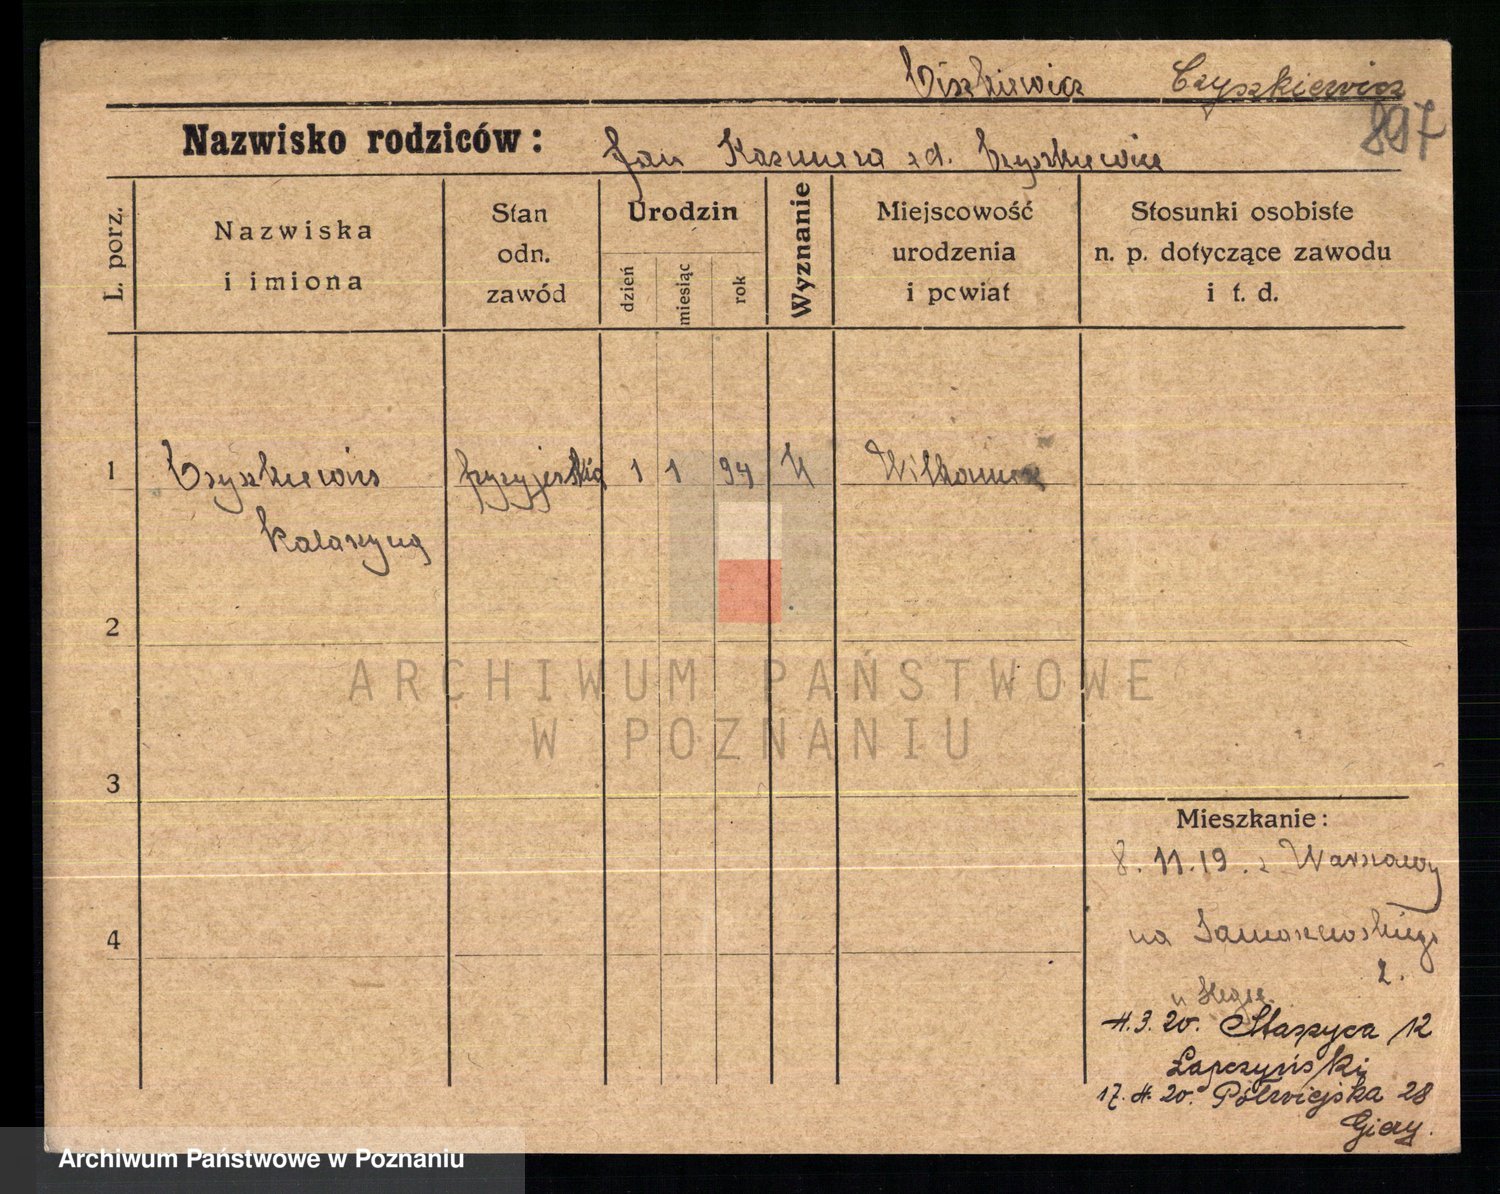 Ciszkiewicz Czyszkiewicz
897
Nazwisko rodziców: Jan Kazimiera zd. Czyszkiewicz
L. porz.
Nazwiska
i imiona
Stan
odn.
zawód
Urodzin
dzień
miesiąc
rok
Wyznanie
Miejscowość
urodzenia
i powiat
Stosunki osobiste
n. p. dotyczące zawodu
i t. d.
1 Czyszkiewicz fryzyjerka 1 1 94 K
Katarzyna
2
3
4
ARCHIWUM PAŃSTWOWE
W POZNANIU
Mieszkanie:
8. 11. 19. z Warszawy
na
2.
u
4. 3. 20. Staszyca 12
Łapczyński
17. 4. 20. Półwiejska 28
Giery.
Archiwum Państwowe w Poznaniu